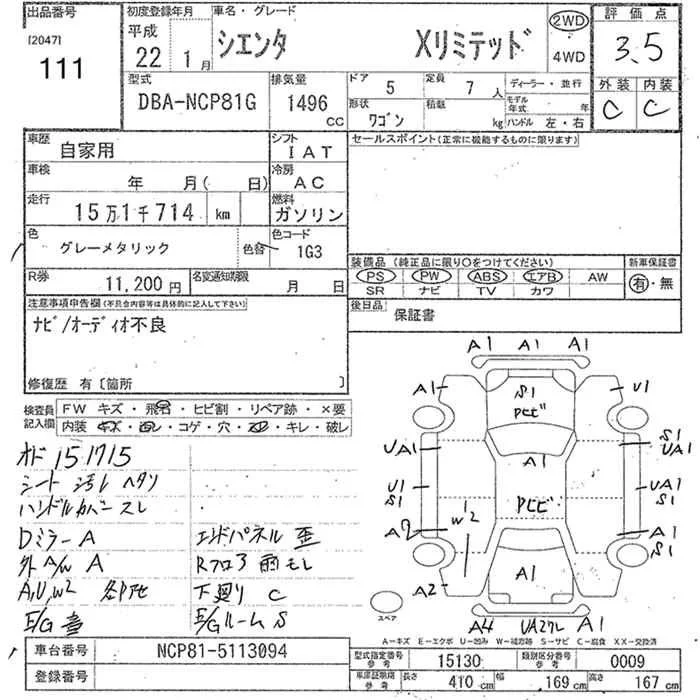 出品番号
[2047]
111
初度登録年月
平成
22 1月
車名・グレード
シエンタ Xリミテッド
2WD
4WD
評価点
3.5
外装 内装
C C
型式
DBA-NCP81G
排気量
1496 CC
ドア 5
定員 7人
形状 ワゴン
積載 kg
ディーラー・並行
モデル年式 年
ハンドル 左・右
車歴
自家用
シフト
IAT
車検
年 月( 日)
冷房
AC
走行
15万1千714 km
燃料
ガソリン
色
グレーメタリック
色替
色コード
1G3
R券
11,200円
名変通知期限
月 日
セールスポイント(正常に機能するものに限ります)
装備品(純正品に限り○をつけてください)
PS PW ABS エアB AW
SR ナビ TV カワ
新車保証書
有・無
後日品
保証書
注意事項申告欄(不具合内容等は具体的に記入して下さい)
ナビ/オーディオ不良
修復歴 有〔箇所 〕
検査員記入欄
FW キズ・飛石・ヒビ割・リペア跡・×要
内装 キズ・汚レ・コゲ・穴・スレ・キレ・破レ
オド 151715
シート 汚レ ヘタリ
ハンドルカバー スレ
Dミラー A
外A/W A
A,U,W2 各所
E/G
エンドパネル 歪
Rフロア 雨モレ
下廻り C
E/Gルーム S
A1 A1 A1
A1
S1
PCビ
U1
UA1
A1
S1
UA1
U1
S1
PCビ
UA1
S1
A2
W2
A1
S1
A2
A1
A4 UA2クレ A1
スペア
A-キズ E-エクボ U-凹み W-補修跡 S-サビ C-腐食 XX-交換済
車台番号
NCP81-5113094
登録番号
型式指定番号
参考
15130
類別区分番号
参考
0009
車庫証明用
参考
長さ 410 cm
幅 169 cm
高さ 167 cm